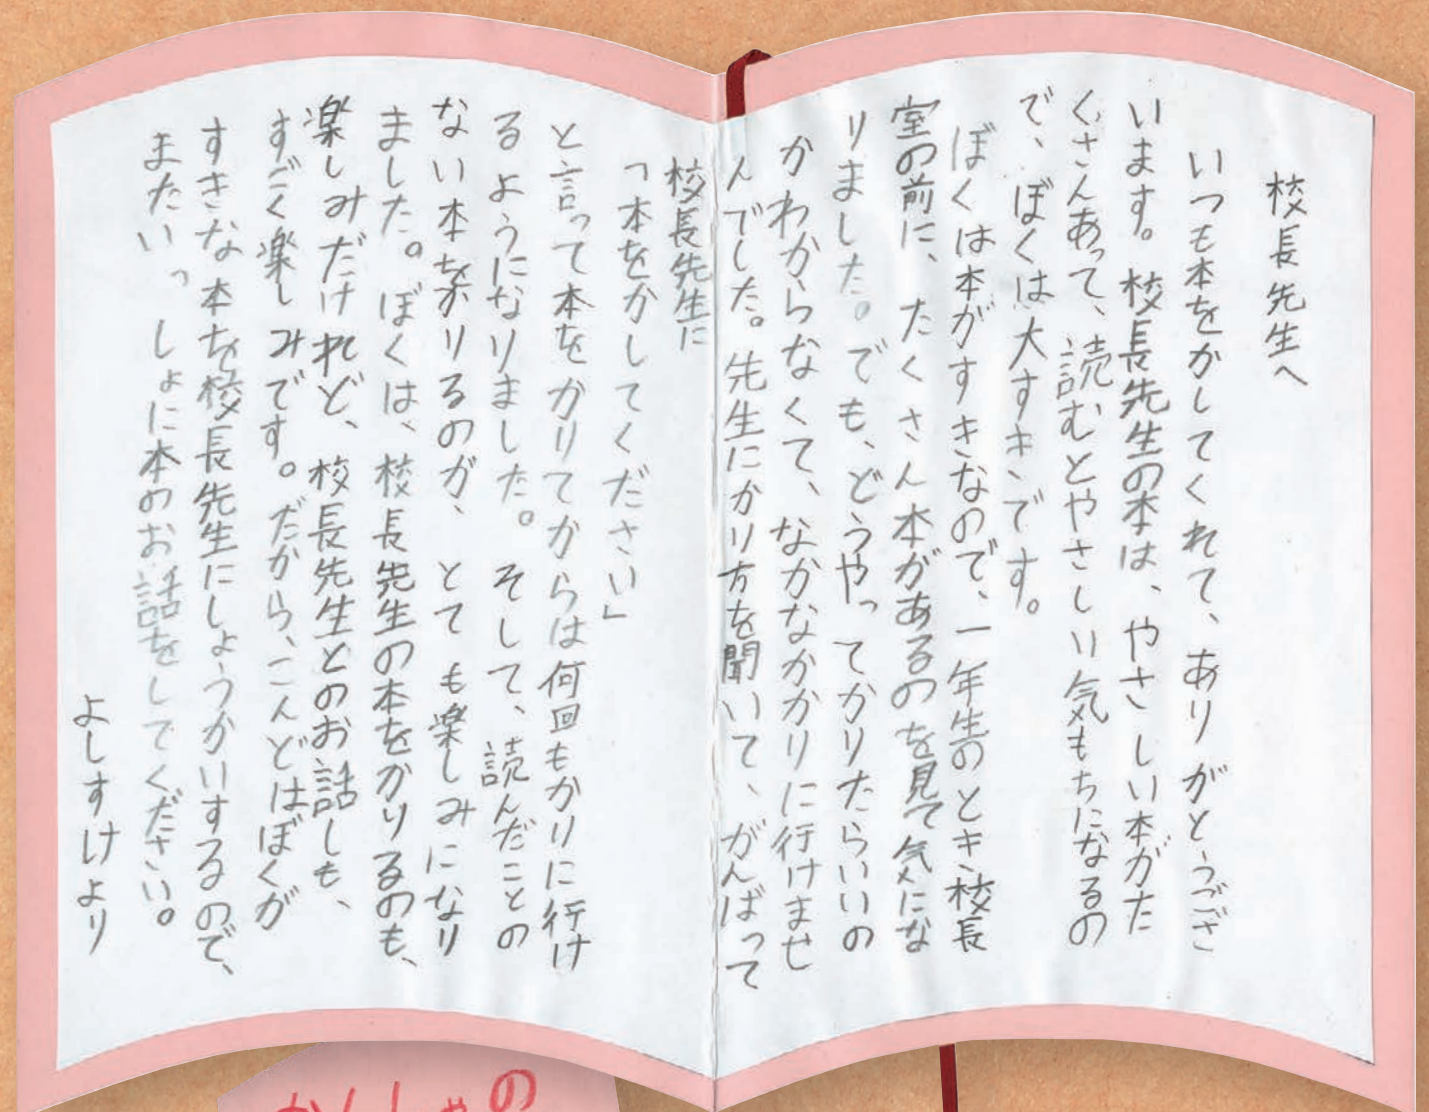 校長先生へ
いつも本をかしてくれて、ありがとうござ
います。校長先生の本は、やさしい本がた
くさんあって、読むとやさしい気もちになるの
で、ぼくは大すきです。
ぼくは本がすきなので、一年生のとき、校長
室の前に、たくさん本があるのを見て気にな
りました。でも、どうやってかりたらいいの
かわからなくて、なかなかかりに行けませ
んでした。先生にかり方を聞いて、がんばって
校長先生に
「本をかしてください」
と言って本をかりてからは何回もかりに行け
るようになりました。そして、読んだことの
ない本をかりるのが、とても楽しみになり
ました。ぼくは、校長先生の本をかりるのも、
楽しみだけれど、校長先生とのお話しも、
すごく楽しみです。だから、こんどはぼくが
すきな本を校長先生にしょうかいするので、
またいっしょに本のお話をしてください。
よしすけより
かんしゃの